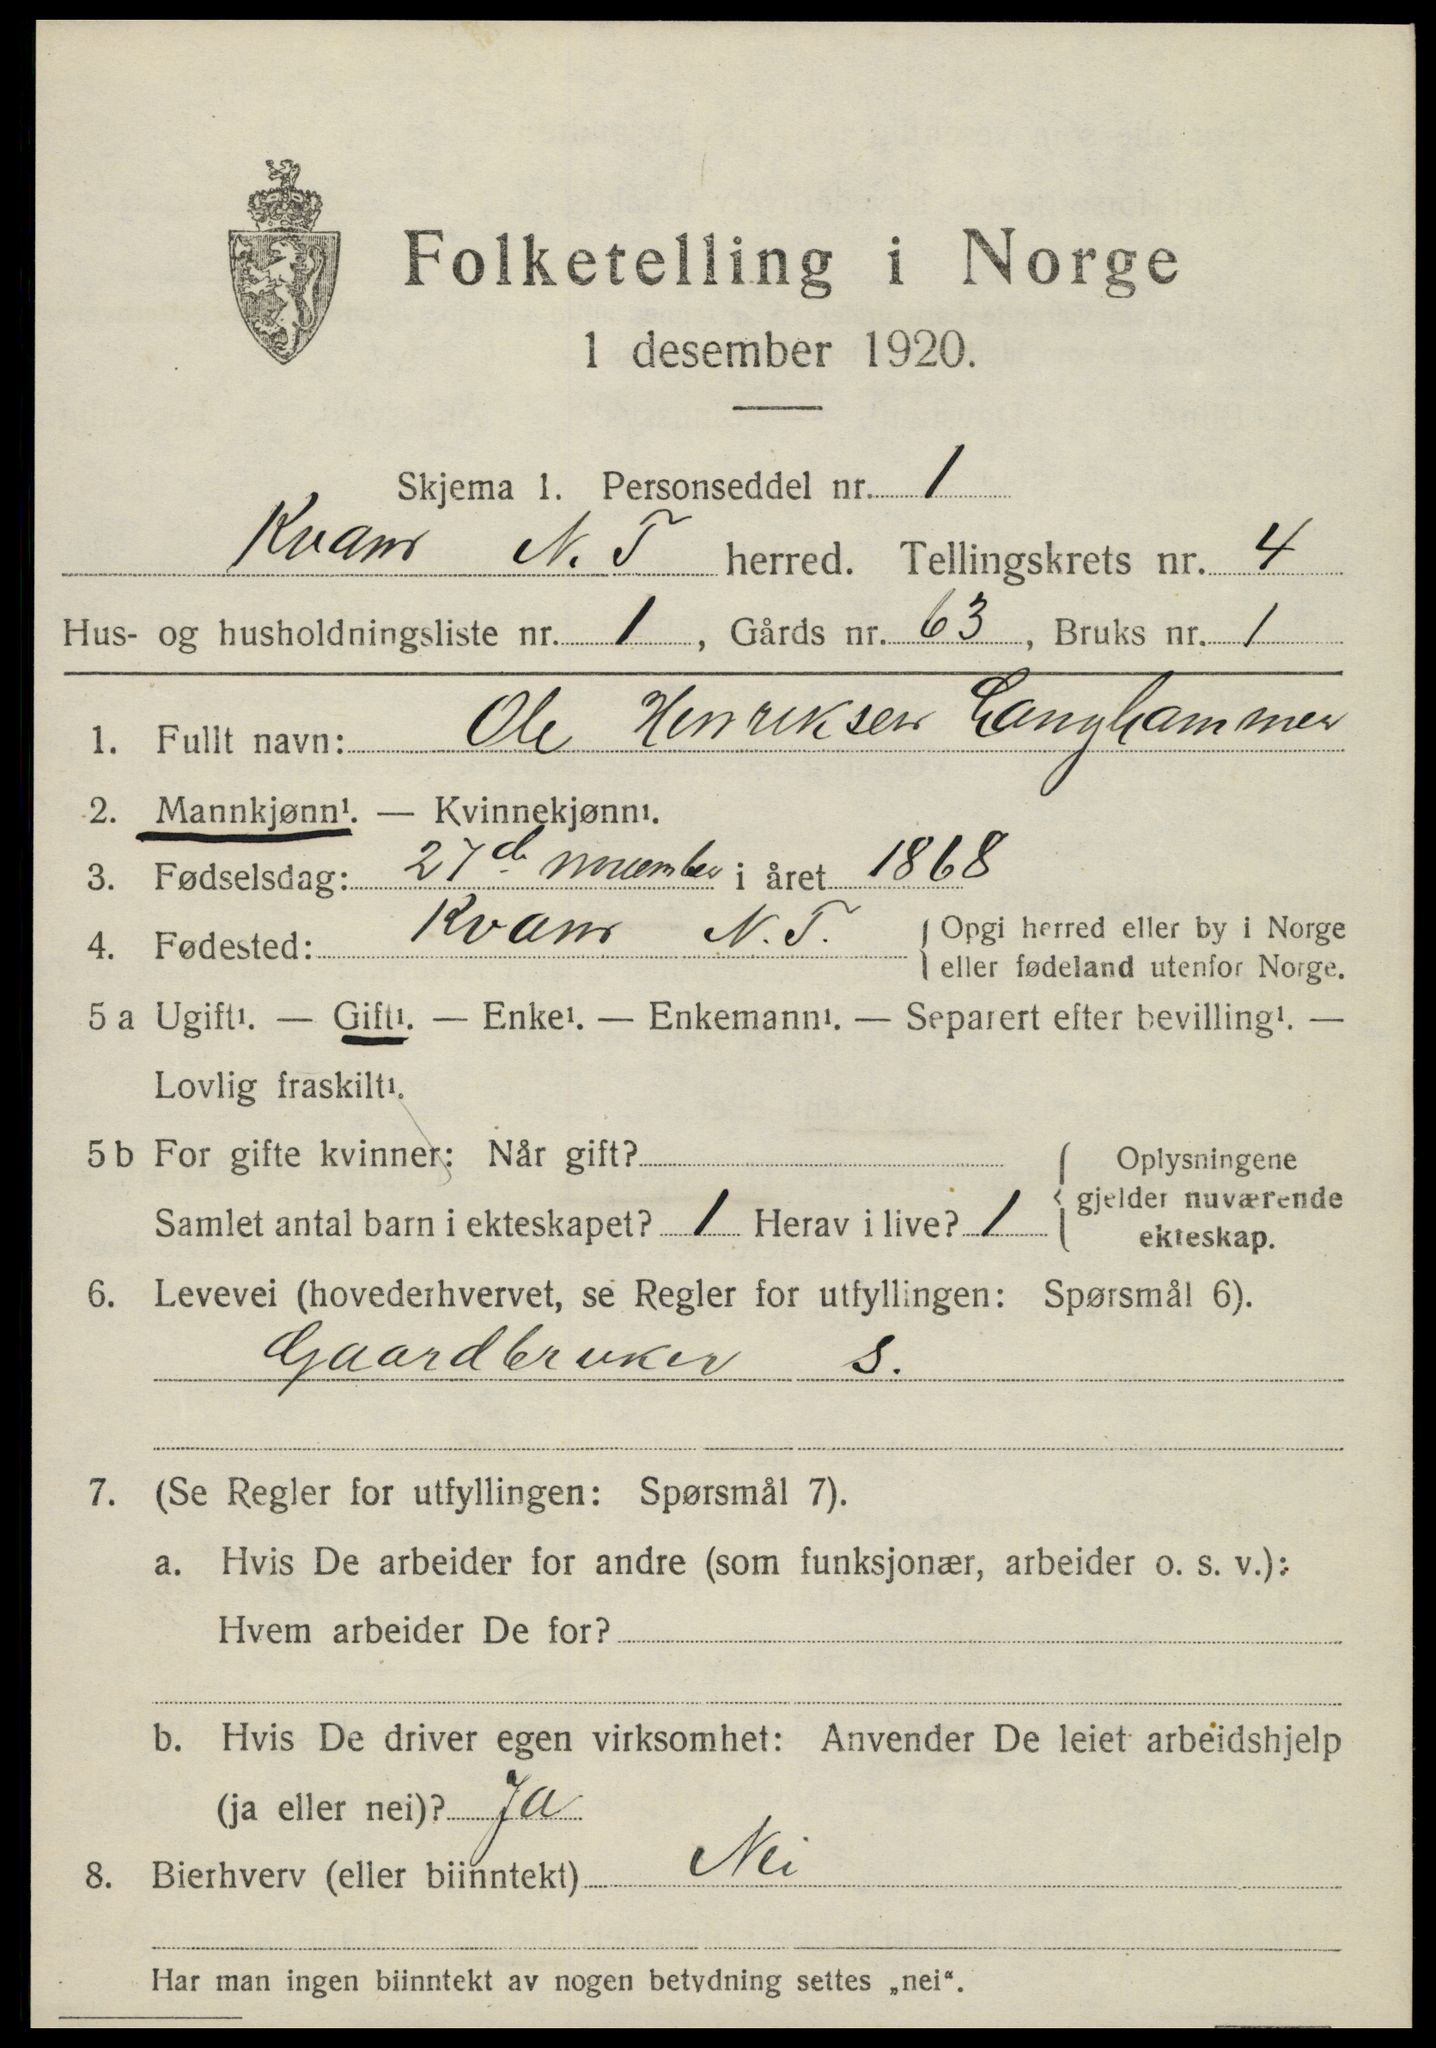 Folketelling i Norge
1 desember 1920.
Skjema 1. Personseddel nr. 1
Kvam N. T herred. Tellingskrets nr. 4
Hus- og husholdningsliste nr. 1, Gårds nr. 63, Bruks nr. 1
1. Fullt navn: Ole Henriksen Langhammer
2. Mannkjønn¹. — Kvinnekjønn¹.
3. Fødselsdag: 27de november i året 1868
4. Fødested: Kvam N. T. { Opgi herred eller by i Norge
eller fødeland utenfor Norge.
5 a Ugift¹. — Gift¹. — Enke¹. — Enkemann¹. — Separert efter bevilling¹. —
Lovlig fraskilt¹.
5 b For gifte kvinner: Når gift? { Oplysningene
gjelder nuværende
ekteskap.
Samlet antal barn i ekteskapet? 1 Herav i live? 1
6. Levevei (hovederhvervet, se Regler for utfyllingen: Spørsmål 6).
Gaardbruker S.
7. (Se Regler for utfyllingen: Spørsmål 7).
a. Hvis De arbeider for andre (som funksjonær, arbeider o. s. v.):
Hvem arbeider De for?
b. Hvis De driver egen virksomhet: Anvender De leiet arbeidshjelp
(ja eller nei)? Ja
8. Bierhverv (eller biinntekt) Nei
Har man ingen biinntekt av nogen betydning settes „nei“.